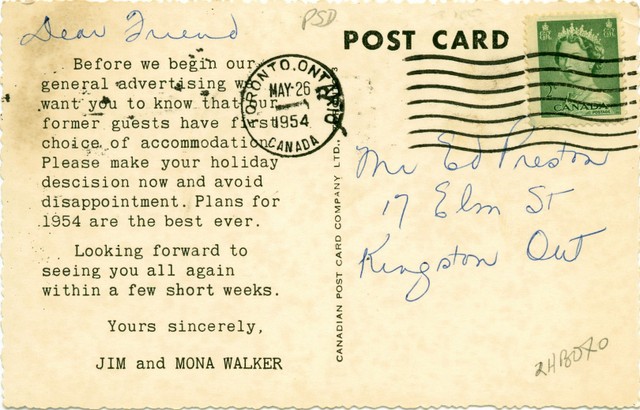 Dear Friend
PSD
POST CARD
Before we begin our
general advertising we
want you to know that our
former guests have first
choice of accommodation.
Please make your holiday
descision now and avoid
disappointment. Plans for
1954 are the best ever.
Looking forward to
seeing you all again
within a few short weeks.
Yours sincerely,
JIM and MONA WALKER
TORONTO, ONTARIO
MAY-26
1954
CANADA
CANADIAN POST CARD COMPANY LTD.,
CANADA
Mr Ed Preston
17 Elm St
Kingston Ont